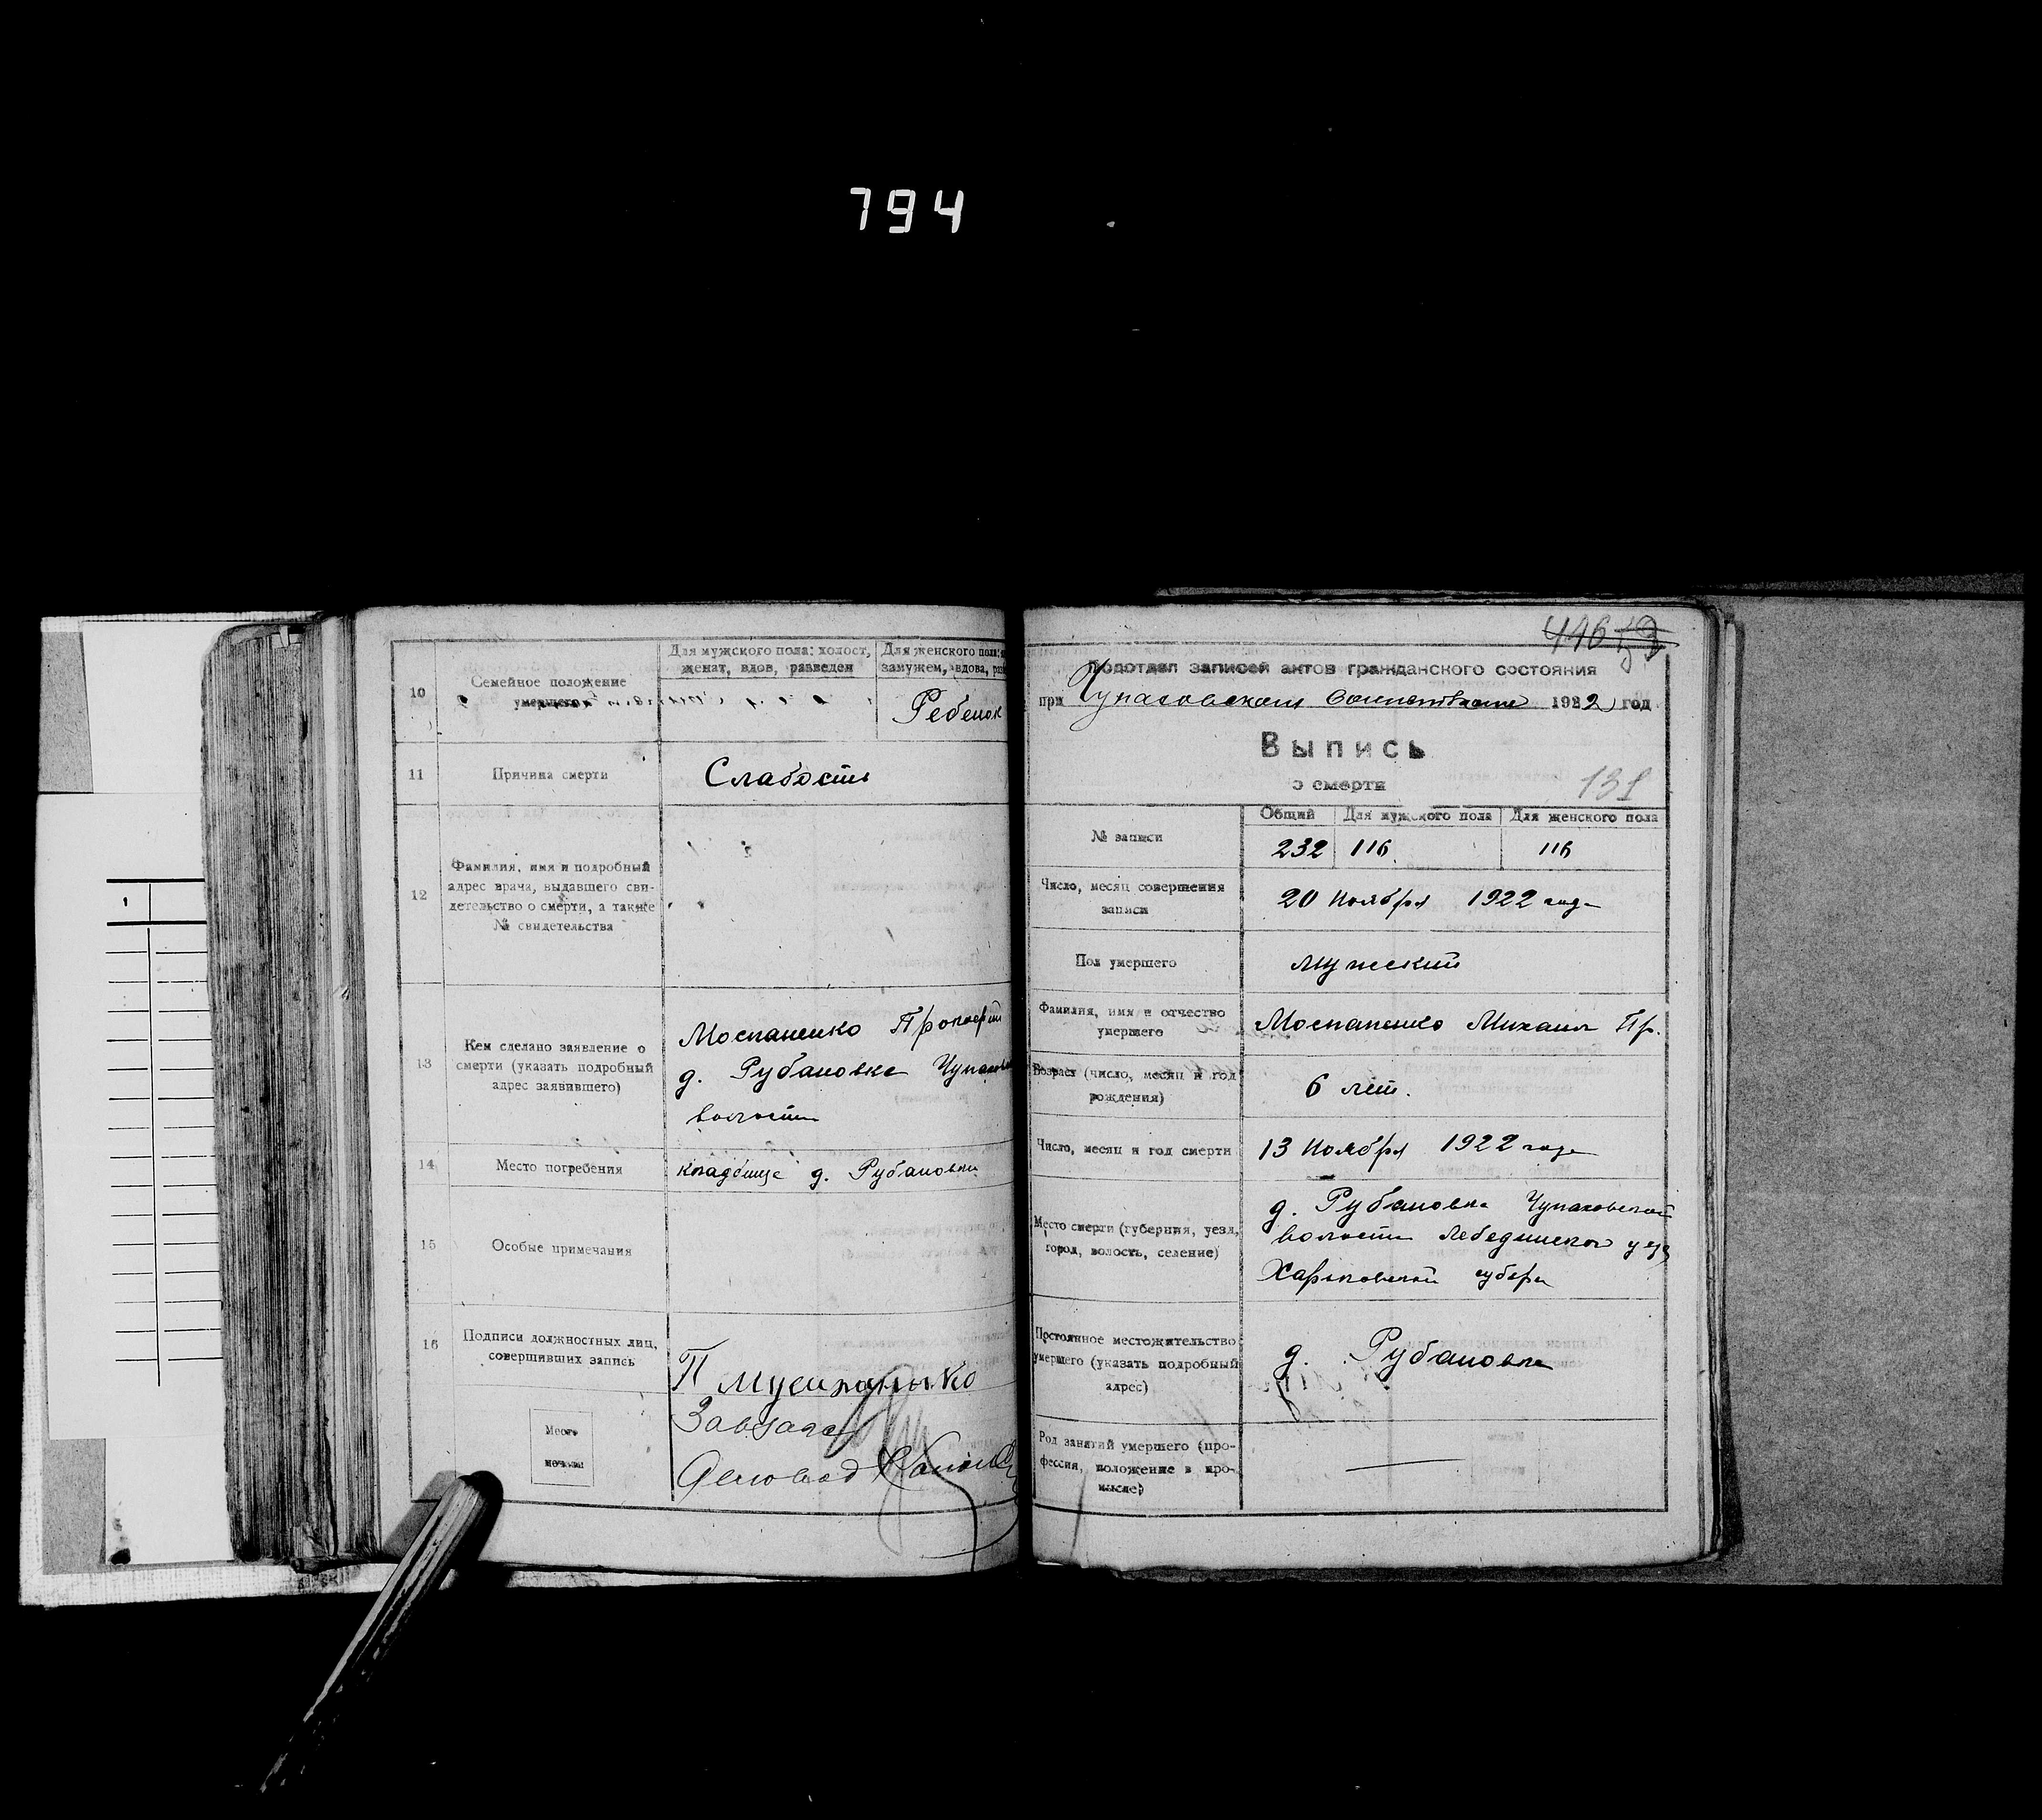 794
Для мужского пола: холост, женат, вдов, разведен
Для женского пола:
замужем, вдова,
10
Семейное положение
умершего
Ребенок
11
Причина смерти
Слабость
12
Фамилия, имя и подробный
адрес врача, выдавшего сви-
детельство о смерти, а также
№ свидетельства
13
Кем сделано заявление о
смерти (указать подробный
адрес заявившего)
Моспаненко Прокофий
д. Рубановка
волости
14
Место погребения
кладбище д. Рубановки
15
Особые примечания
16
Подписи должностных лиц,
совершивших запись
П
Место
печати
Деловод
446
Подотдел записей актов гражданского состояния
при Чупаховском 1922 год
Выпись
о смерти
131
№ записи
Общий
Для мужского пола
Для женского пола
232
116
116
Число, месяц совершения
записи
20 Ноября 1922 года
Пол умершего
мужский
Фамилия, имя и отчество
умершего
Моспаненко Михаил Пр.
Возраст (число, месяц и год
рождения)
6 лет.
Число, месяц и год смерти
13 Ноября 1922 года
Место смерти (губерния, уезд,
город, волость, селение)
д. Рубановка Чупаховской
волости Лебединского уезд
Харьковской губерн
Постоянное местожительство
умершего (указать подробный
адрес)
д. Рубановка
Род занятий умершего (про-
фессия, положение в про-
мысле)
1